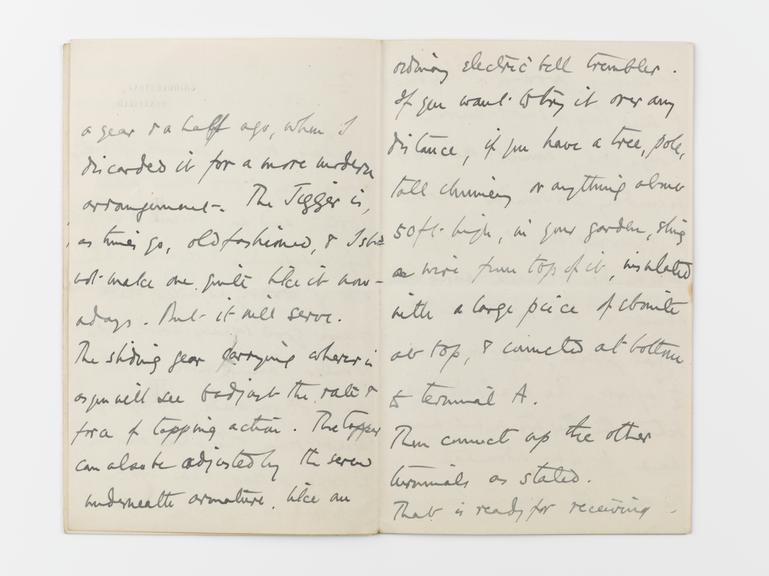 a year & a half ago, when I
discarded it for a more modern
arrangement. The Jigger is,
as times go, old fashioned, & I shd
not make one quite like it now-
adays. But it will serve.
The sliding gear carrying coherer is
as you will see to adjust the rate &
force of tapping action. The tapper
can also be adjusted by the screw
underneath armature, like an
ordinary electric bell trembler.
If you want to try it over any
distance, if you have a tree, pole,
tall chimney or anything about
50 ft. high, in your garden, sling
a wire from top of it, insulated
with a large piece of ebonite
at top, & connected at bottom
to terminal A.
Then connect up the other
terminals as stated.
That is ready for receiving.